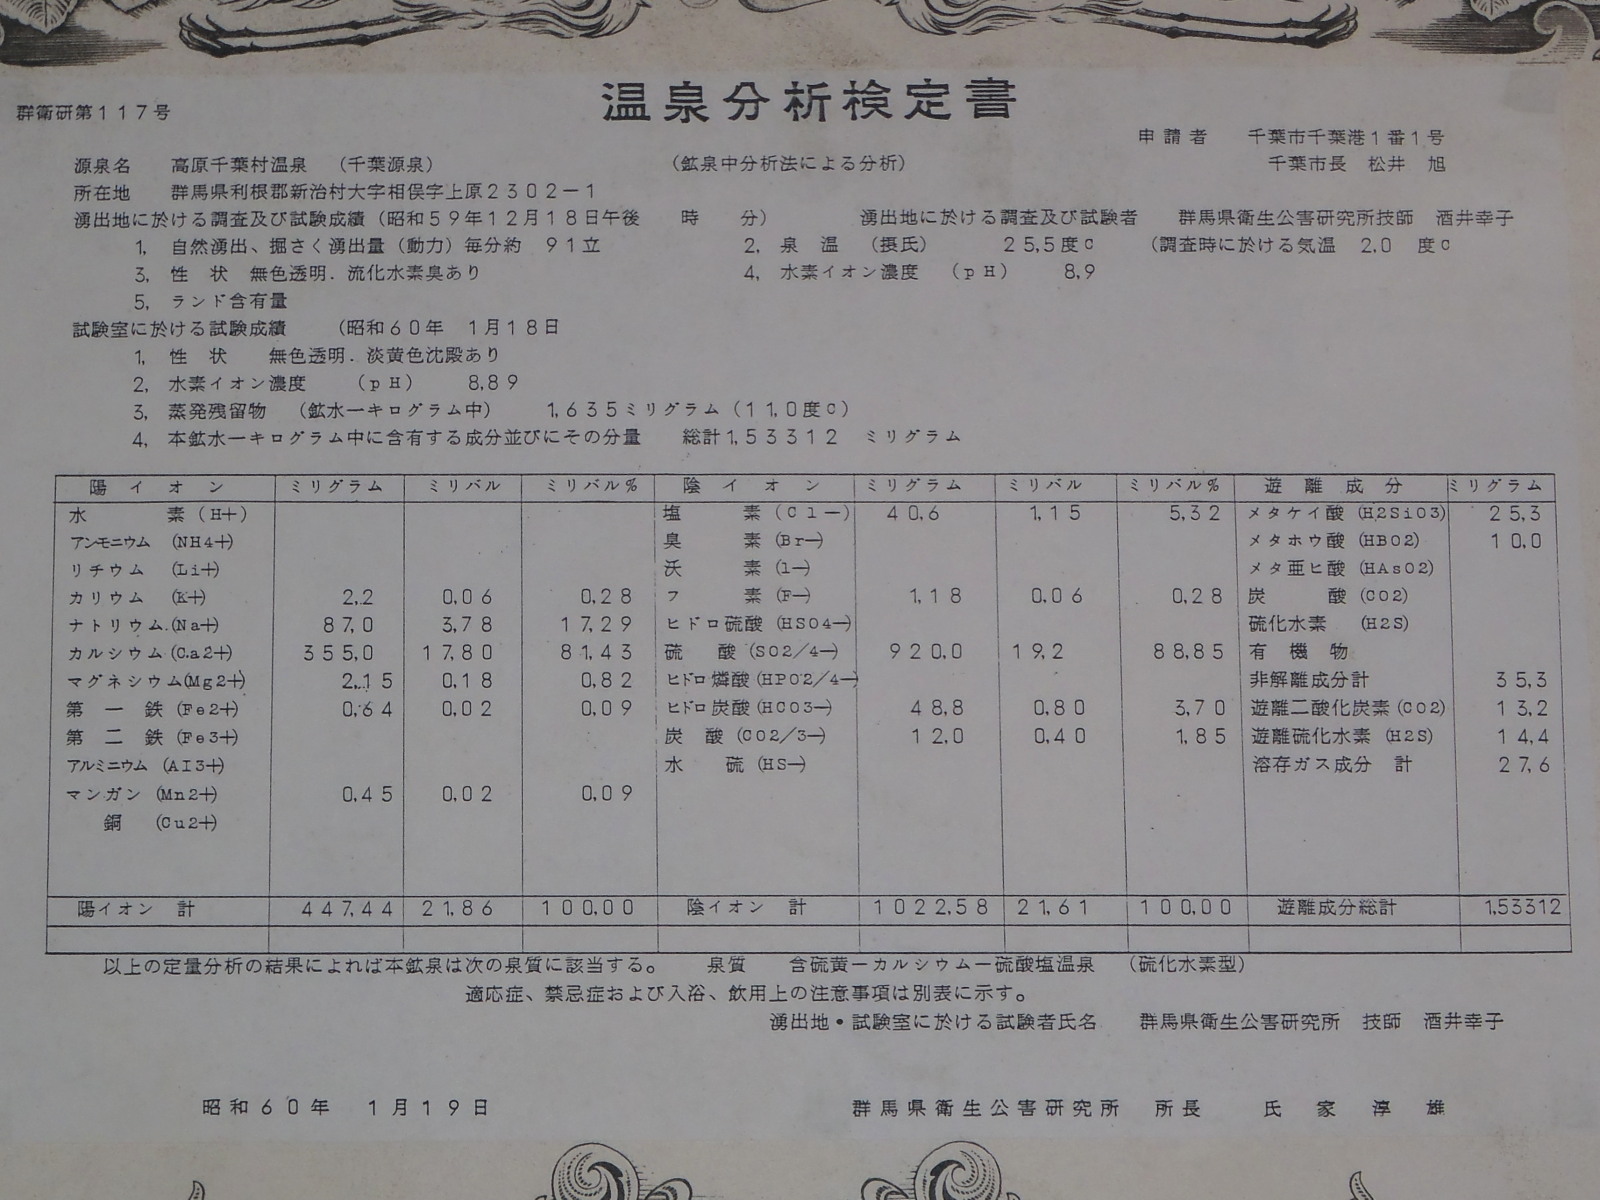 温泉分析検定書
群衛研第117号
申請者 千葉市千葉港1番1号
源泉名 高原千葉村温泉 (千葉源泉) (鉱泉中分析法による分析) 千葉市長 松井 旭
所在地 群馬県利根郡新治村大字相俣字上原2302-1
湧出地に於ける調査及び試験成績(昭和59年12月18日午後 時 分) 湧出地に於ける調査及び試験者 群馬県衛生公害研究所技師 酒井幸子
1, 自然湧出、掘さく湧出量(動力)毎分約 91立 2, 泉温 (摂氏) 25,5度C (調査時に於ける気温 2,0 度C
3, 性 状 無色透明.流化水素臭あり 4, 水素イオン濃度 (pH) 8,9
5, ランド含有量
試験室に於ける試験成績 (昭和60年 1月18日
1, 性 状 無色透明.淡黄色沈殿あり
2, 水素イオン濃度 (pH) 8,89
3, 蒸発残留物 (鉱水一キログラム中) 1,635ミリグラム(11,0度C)
4, 本鉱水一キログラム中に含有する成分並びにその分量 総計1,53312 ミリグラム
陽イオン ミリグラム ミリバル ミリバル% 陰イオン ミリグラム ミリバル ミリバル% 遊離成分 ミリグラム
水 素(H+) 塩 素(Cl-) 40,6 1,15 5,32 メタケイ酸(H2SiO3) 25,3
アンモニウム (NH4+) 臭 素(Br-) メタホウ酸(HBO2) 10,0
リチウム (Li+) 沃 素(l-) メタ亜ヒ酸(HAsO2)
カリウム (K+) 2,2 0,06 0,28 フ 素(F-) 1,18 0,06 0,28 炭 酸(CO2)
ナトリウム.(Na+) 87,0 3,78 17,29 ヒドロ硫酸(HSO4-) 硫化水素 (H2S)
カルシウム(Ca2+) 355,0 17,80 81,43 硫 酸(SO2/4-) 920,0 19,2 88,85 有機物
マグネシウム(Mg2+) 2,15 0,18 0,82 ヒドロ燐酸(HPO2/4-) 非解離成分計 35,3
第一鉄(Fe2+) 0,64 0,02 0,09 ヒドロ炭酸(HCO3-) 48,8 0,80 3,70 遊離二酸化炭素(CO2) 13,2
第二鉄(Fe3+) 炭 酸(CO2/3-) 12,0 0,40 1,85 遊離硫化水素(H2S) 14,4
アルミニウム(AI3+) 水 硫(HS-) 溶存ガス成分 計 27,6
マンガン(Mn2+) 0,45 0,02 0,09
銅 (Cu2+)
陽イオン 計 447,44 21,86 100,00 陰イオン 計 1022,58 21,61 100,00 遊離成分総計 1,53312
以上の定量分析の結果によれば本鉱泉は次の泉質に該当する。 泉質 含硫黄ーカルシウムー硫酸塩温泉 (硫化水素型)
適応症、禁忌症および入浴、飲用上の注意事項は別表に示す。
湧出地・試験室に於ける試験者氏名 群馬県衛生公害研究所 技師 酒井幸子
昭和60年 1月19日 群馬県衛生公害研究所 所長 氏家淳雄